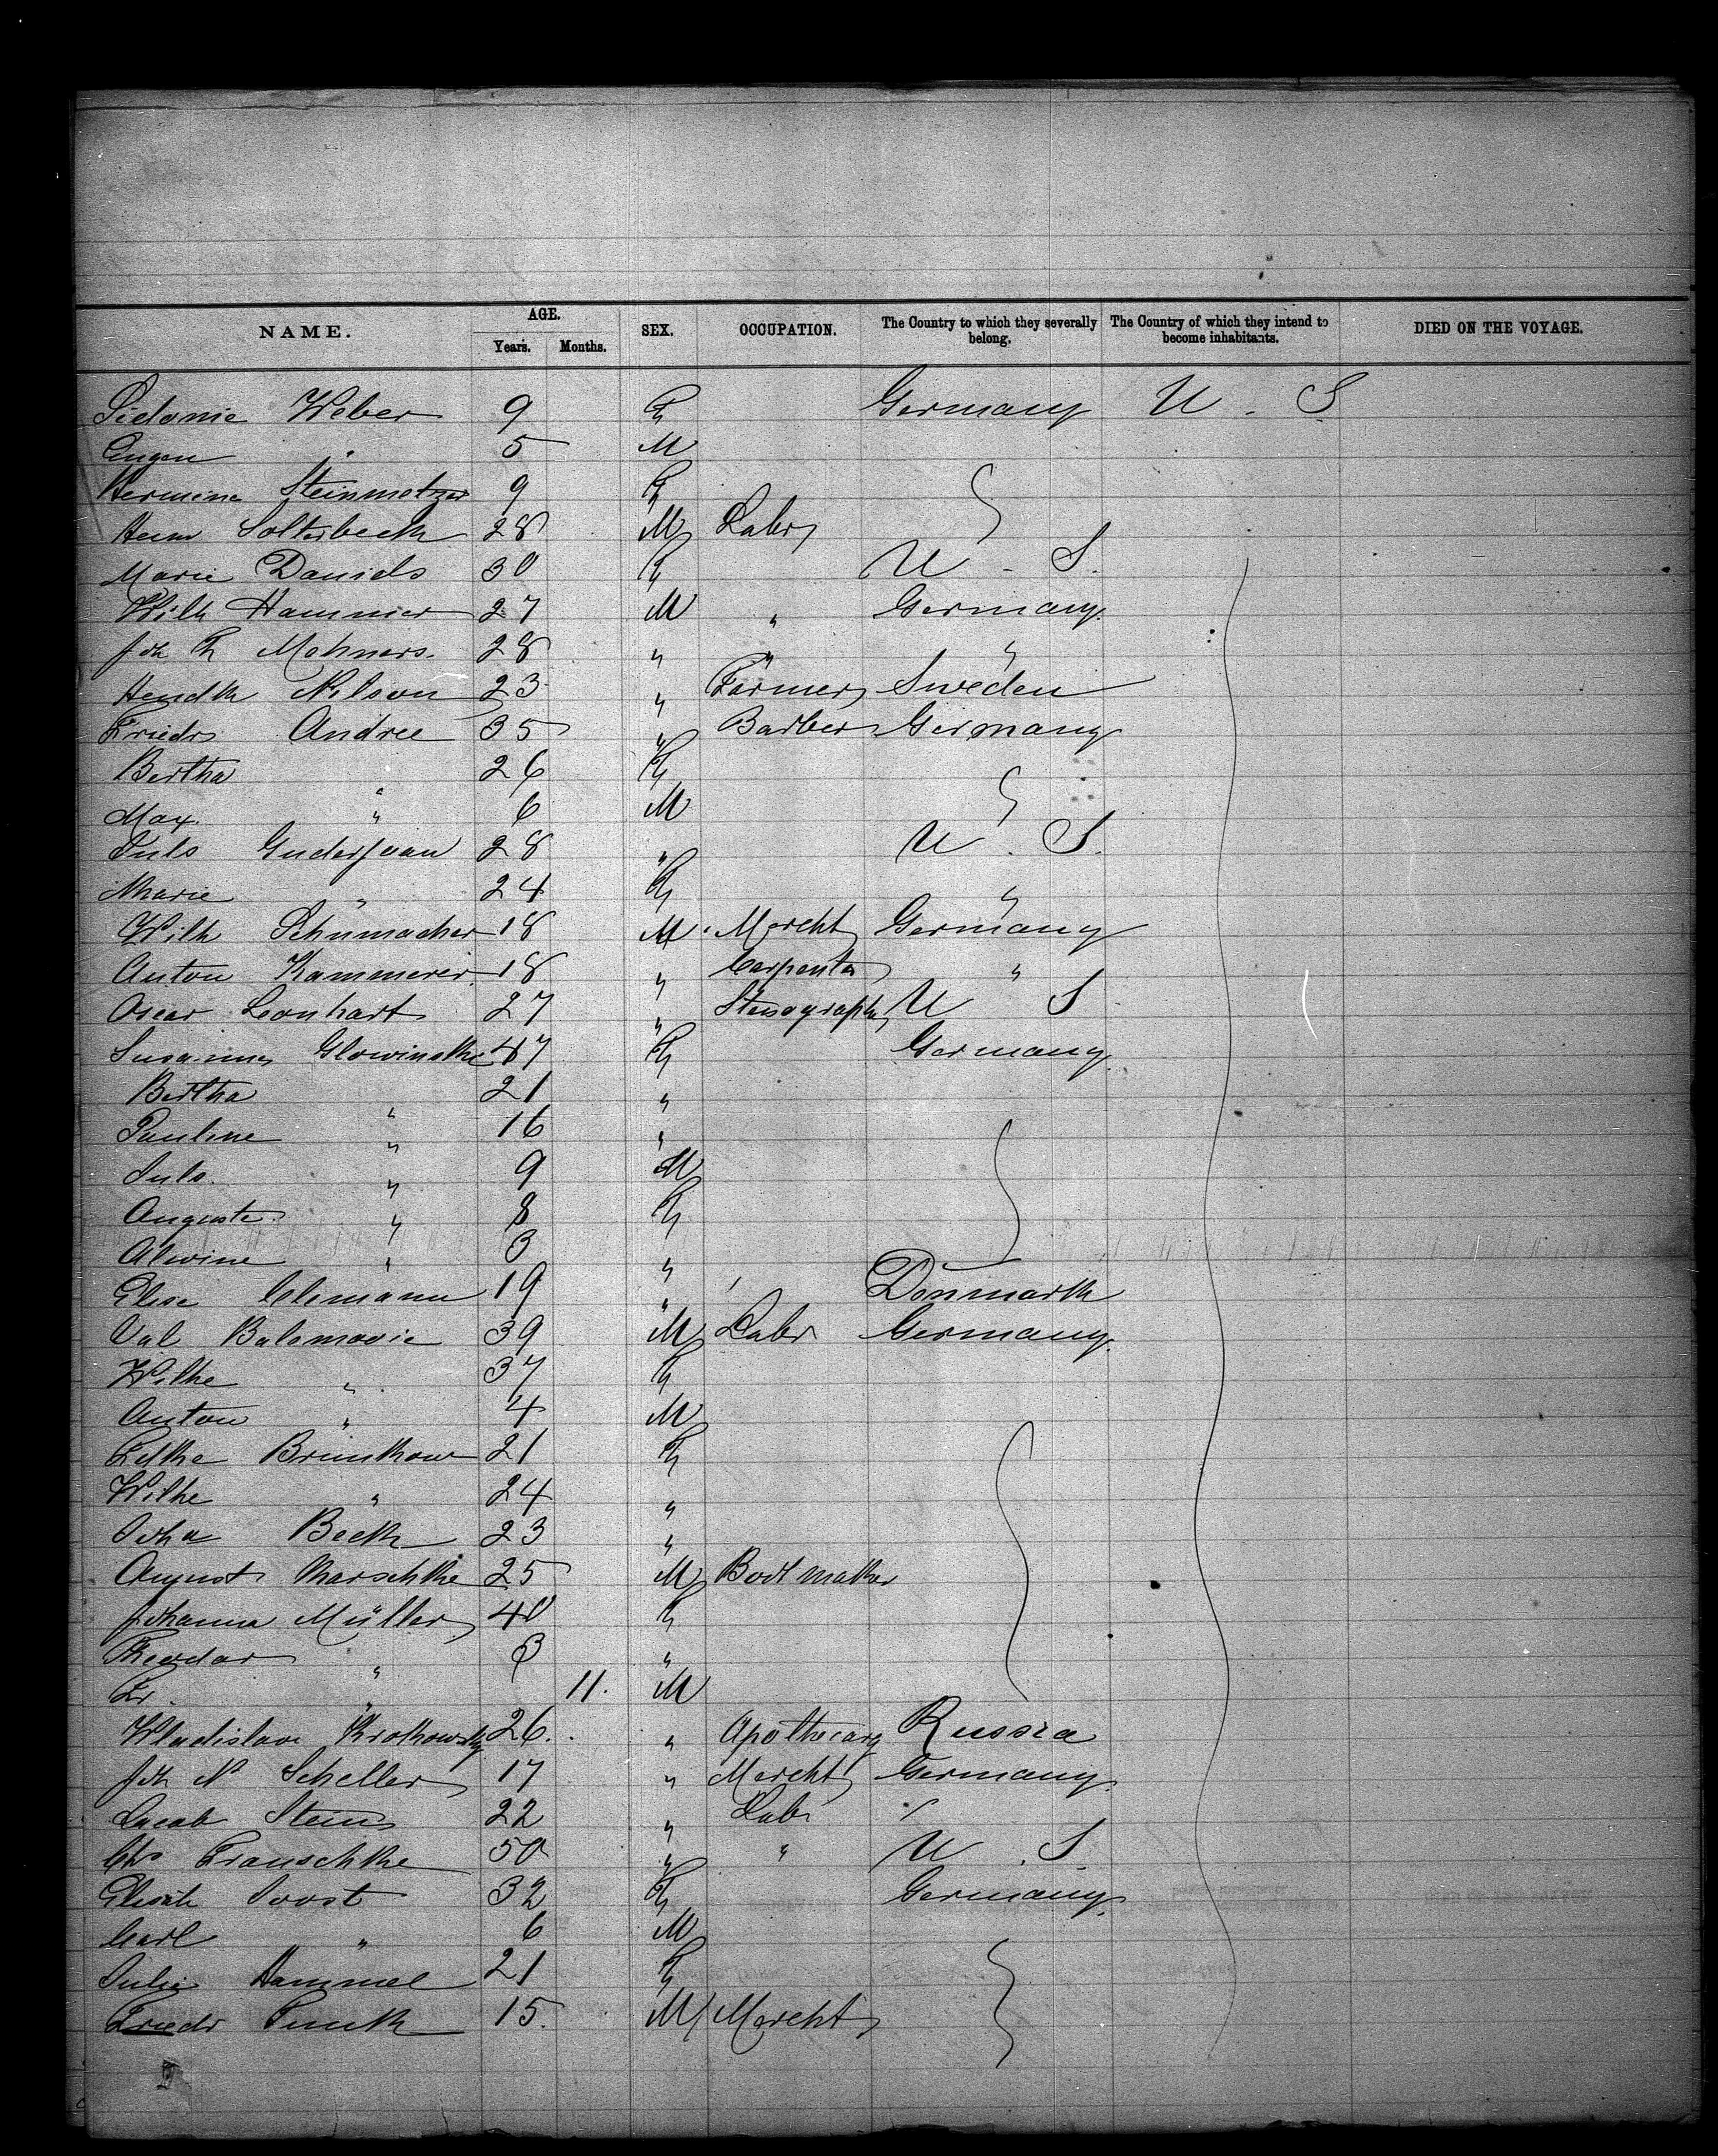 NAME. AGE. Years. Months. SEX. OCCUPATION. The Country to which they severally belong. The Country of which they intend to become inhabitants. DIED ON THE VOYAGE.
Sidonie Weber 9 F Germany U. S
Eugen " 5 M
Hermine Steinmetzer 9 F
Heinr Solterbeck 28 M Labr
Marie Daniels 30 F U. S.
Wilh Hammer 27 M " Germany
Joh F Mohners. 28 " " "
Hendk Nilson 23 " Farmer Sweden
Friedr Andree 35 " Barber Germany
Bertha " 26 F
Max " 6 M
Juls Guderjaan 28 " U. S.
Marie " 24 F "
Wilh Schumacher 18 M Mercht Germany
Anton Kammerer 18 " Carpenter "
Oscar Leonhart 27 " Stenograph U S
Susanna Glowinski 47 F Germany
Bertha " 21 "
Pauline " 16 "
Juls. " 9 M
Auguste " 8 F
Alwine " 3 "
Elise Clemann 19 " Denmark
Val 39 M Labr Germany
Wilhe " 37 F
Anton " 4 M
Brunkow 21 F
Wilhe " 24 "
Joha Beck 23 "
August Marschke 25 M Bootmaker
Johanna Müller 40 F
Theodor " 3 "
Fr. " 11. M
Wladislaw Krokowsky 26. " Apothecary Russia
Joh N Scheller 17 " Mercht Germany
Jacob Stein 22 " Labr "
Chr Franschke 50 " " U. S.
Elisab Joost 32 F Germany
Carl " 6 M
Julie Hammel 21 F
Friedr Funk 15. M Mercht